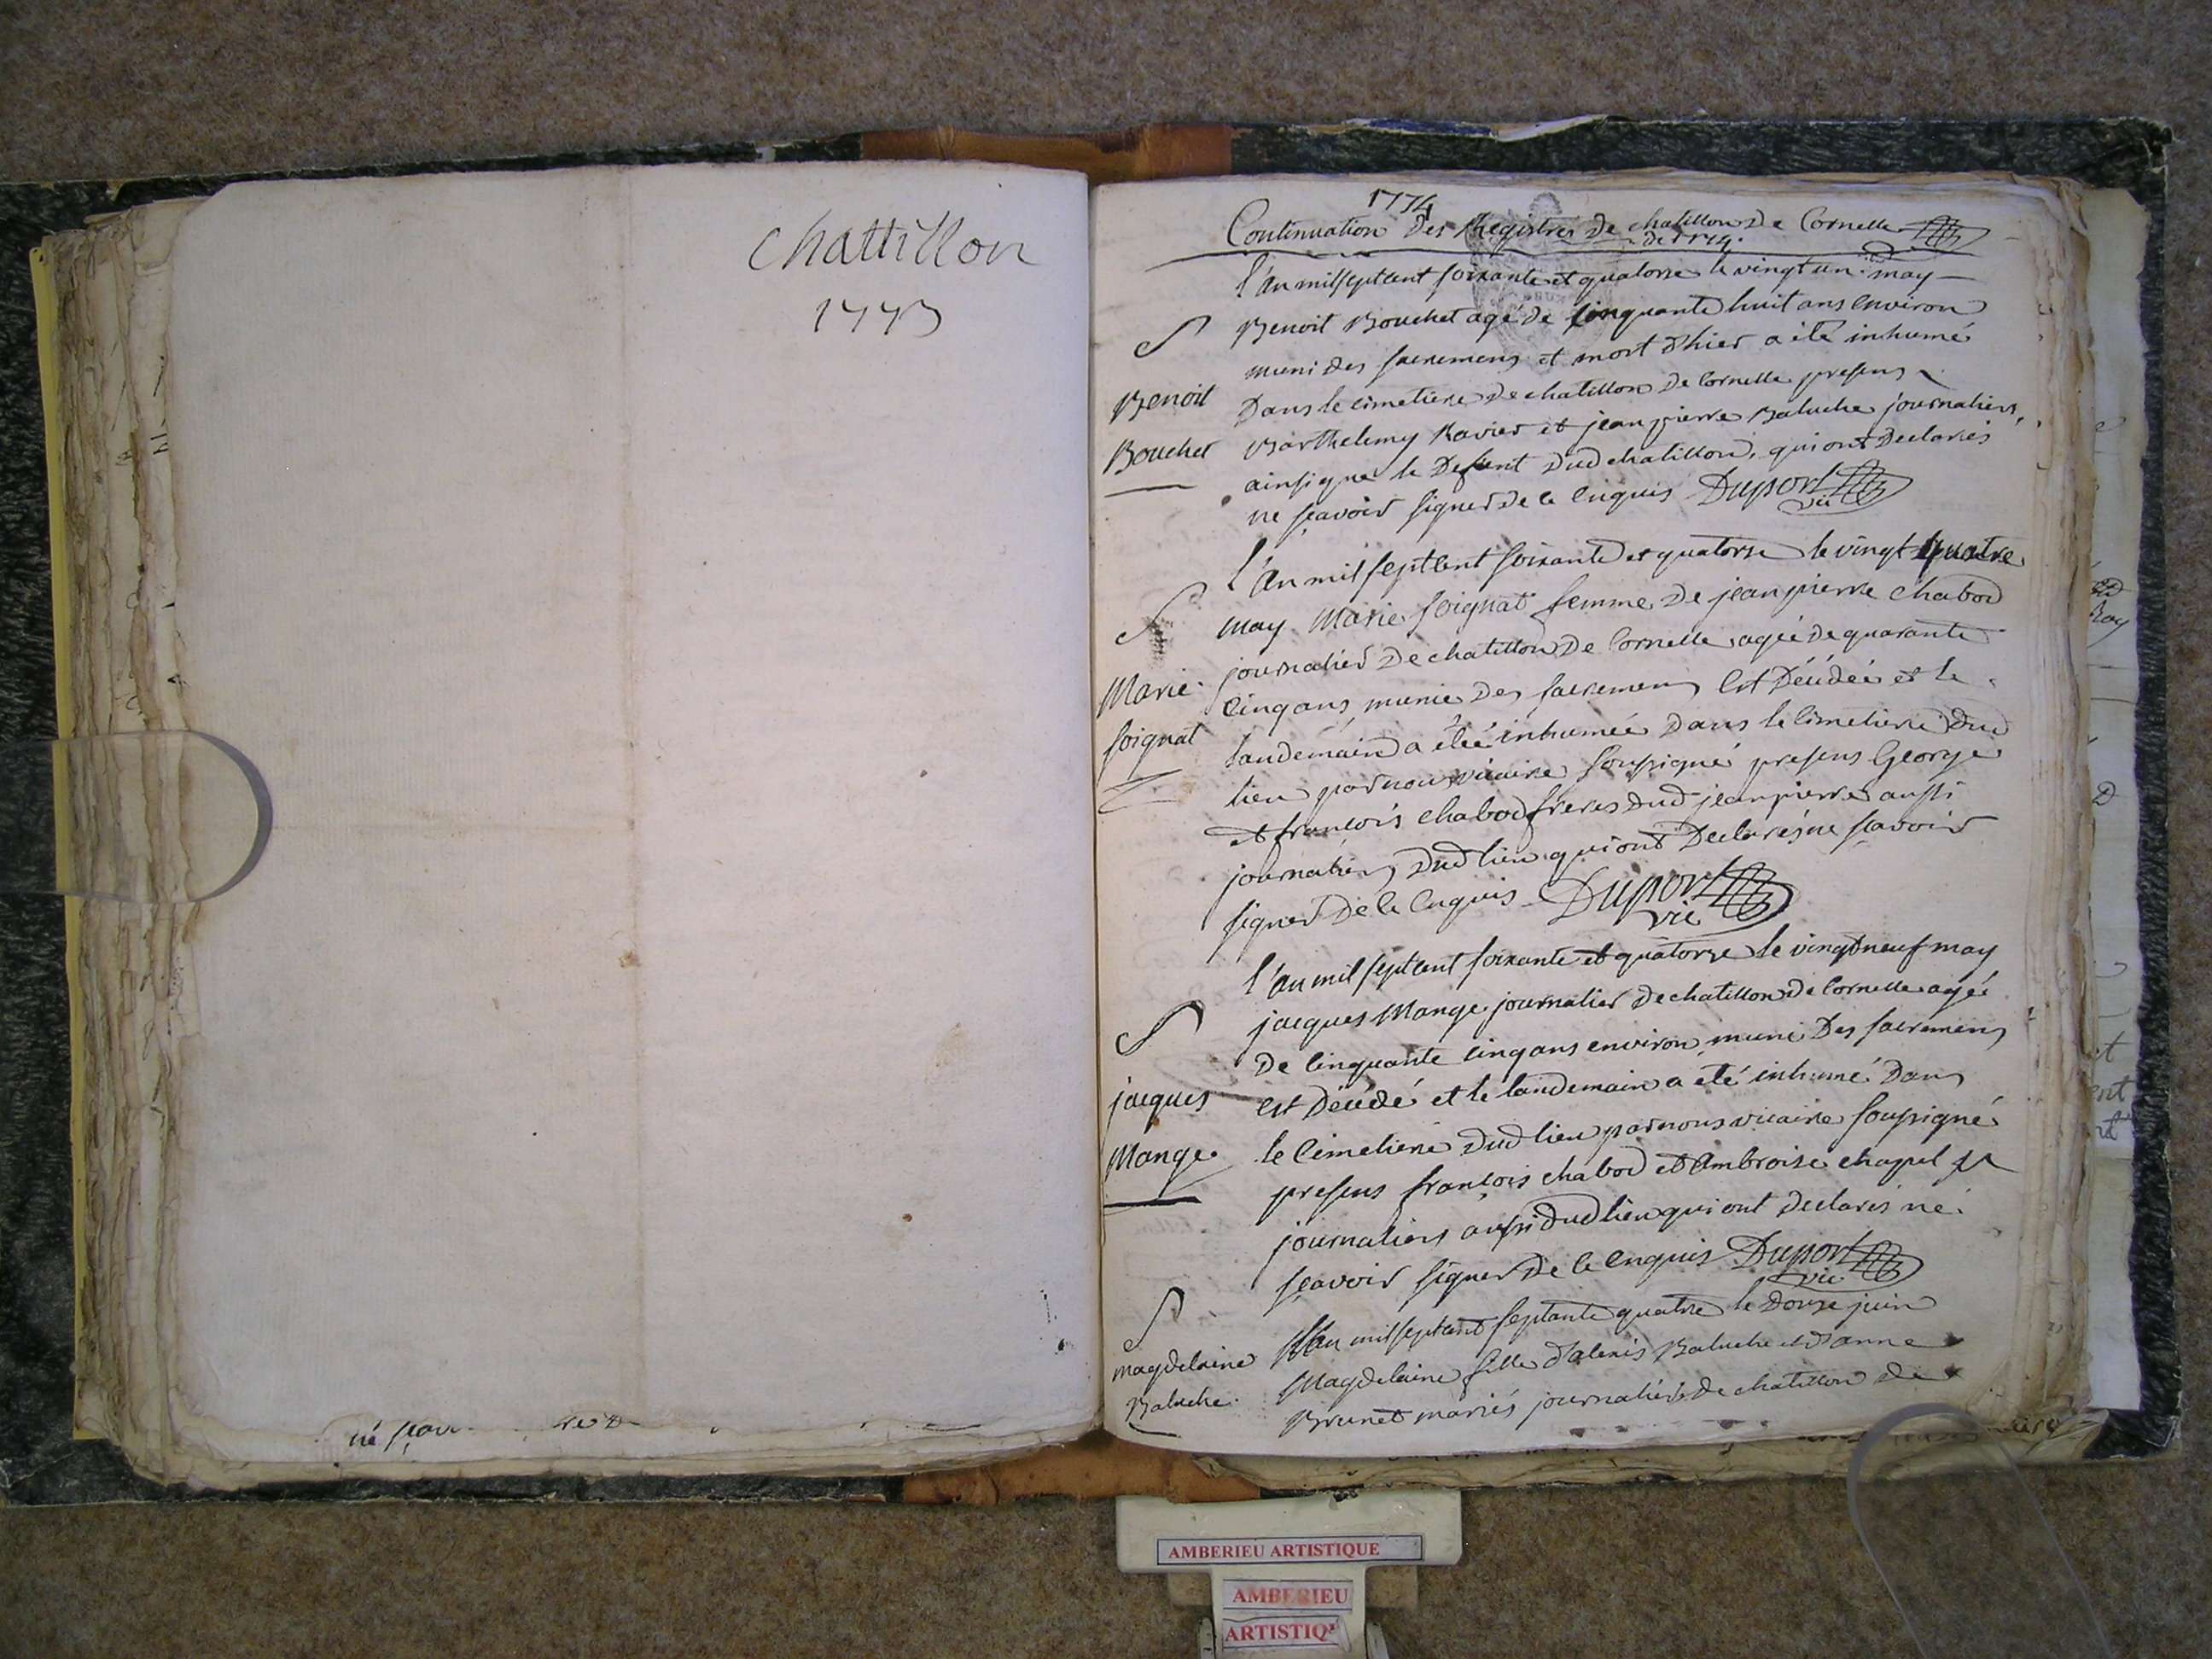 Chattillon
1773
1774
Continuation des Registres de chatillon de Cornelle
de 1774.
l'an mil sept cent soixante et quatorse le vingt un may
Benoit Bouchet agé de cinquante huit ans environ
muni des sacremens et mort d'hier a été inhumé
Dans le cimetiere de chatillon de Cornelle presens
Barthelemy Ravier et jean pierre Baluche journaliers,
ainsi que le Defunt dud chatillon, qui ont Declarés
ne sçavoir signer de ce enquis Duport
vic
Benoit
Bouchet
L'an mil sept cent soixante et quatorse le vingt quatre
may Marie soignat femme De jean pierre chabod
journalier De chatillon De Cornelle agée de quarante
cinq ans, munie des sacremens est Décédée et le
landemain a étée inhumée Dans le cimetiere dud
lieu par nous vicaire soussigné presens George
et françois chabod freres dud jean pierre aussi
journaliers dud lieu qui ont Declarés ne sçavoir
signer De ce enquis Duport
vic
Marie
soignat
l'an mil sept cent soixante et quatorze le vingt neuf may
jacques Mange journalier De chatillon de Cornelle agé
De cinquante cinq ans environ, muni Des sacremens
est Décédé et le landemain a été inhumé Dans
le Cimetiere dud lieu par nous vicaire soussigné
presens françois chabod et Ambroise chapel
journaliers aussi dud lieu qui ont declarés ne
sçavoir signer De ce enquis Duport
vic
jacques
Mange
L'an mil sept cent septante quatre le Douze juin
Magdelaine fille d'alexis Baluche et d'anne
Brunet mariés journaliers de chatillon de
magdelaine
Baluche
né sçav
AMBERIEU ARTISTIQUE
AMBERIEU
ARTISTIQ